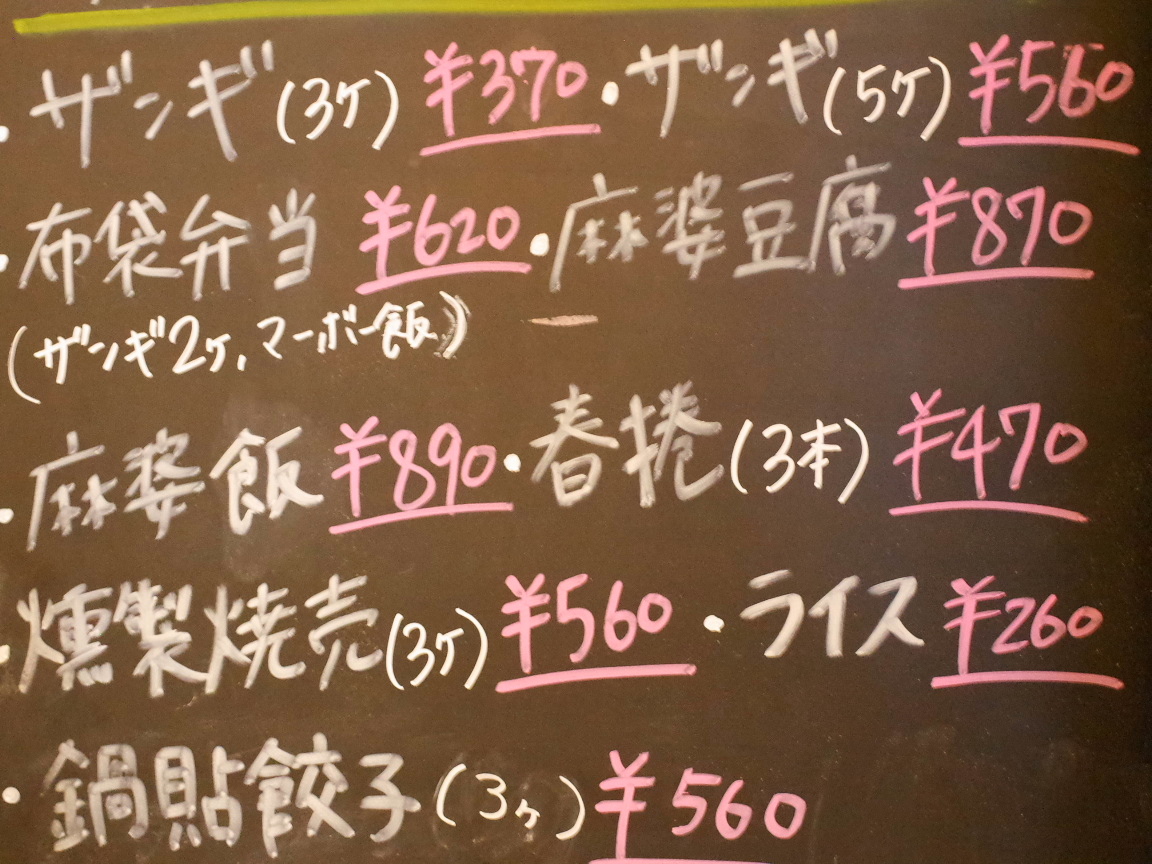 ・ザンギ(3ヶ) ¥370 ・ザンギ(5ヶ) ¥560
・布袋弁当 ¥620 ・麻婆豆腐 ¥870
(ザンギ2ヶ、マーボー飯)
・麻婆飯 ¥890 ・春捲(3本) ¥470
・燻製焼売(3ヶ) ¥560 ・ライス ¥260
・鍋貼餃子(3ヶ) ¥560